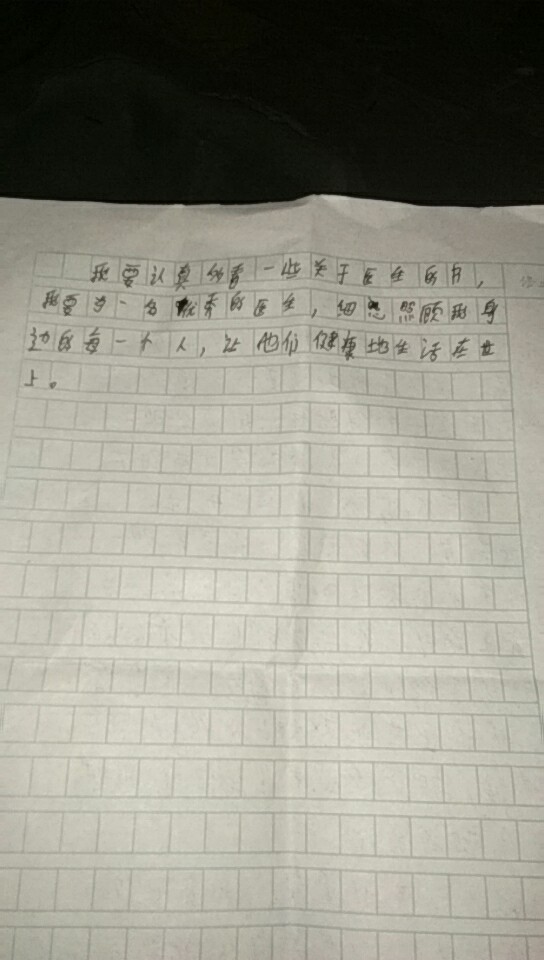 我要认真的看一些关于医生的书，
我要当一名优秀的医生，细心照顾我身
边的每一个人，让他们健康地生活在世
上。